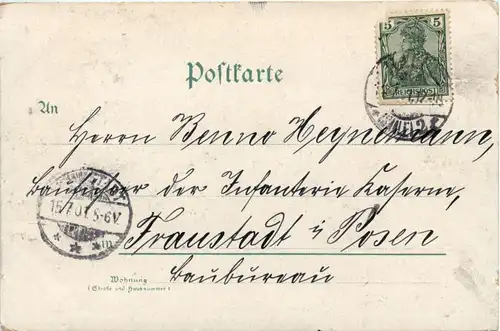 5
REICHSPOST
Postkarte
An
Herrn Benno Heynemann,
Bauführer der Infanterie Kaserne,
15/7 01 5-6V
in
Fraustadt i Posen
Baubureau
Wohnung
(Straße und Hausnummer)